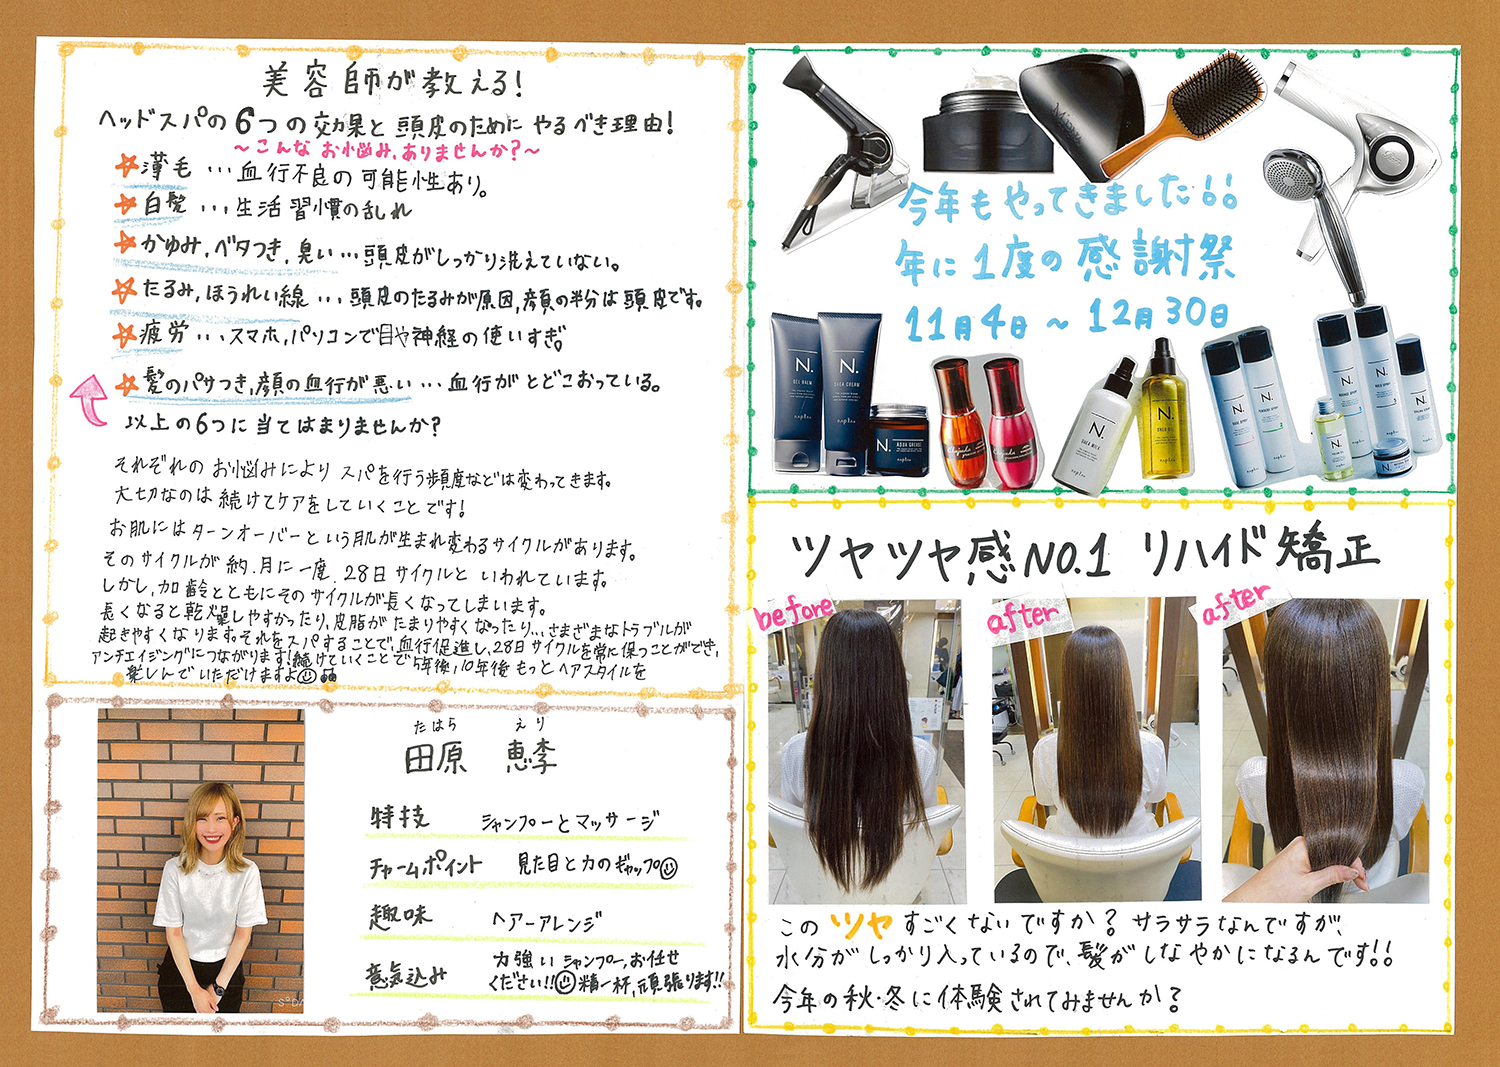 美容師が教える!
ヘッドスパの6つの効果と頭皮のためにやるべき理由!
~こんなお悩み、ありませんか?~
☆薄毛…血行不良の可能性あり。
☆白髪…生活習慣の乱れ
☆かゆみ,ベタつき,臭い…頭皮がしっかり洗えていない。
☆たるみ,ほうれい線…頭皮のたるみが原因,顔の半分は頭皮です。
☆疲労…スマホ,パソコンで目や神経の使いすぎ。
☆髪のパサつき,顔の血行が悪い…血行がとどこおっている。
以上の6つに当てはまりませんか?
それぞれのお悩みによりスパを行う頻度などは変わってきます。
大切なのは続けてケアをしていくことです!
お肌にはターンオーバーという肌が生まれ変わるサイクルがあります。
そのサイクルが約.月に一度.28日サイクルといわれています。
しかし,加齢とともにそのサイクルが長くなってしまいます。
長くなると乾燥しやすかったり,皮脂がたまりやすくなったり…さまざまなトラブルが
起きやすくなります。それをスパすることで,血行促進し,28日サイクルを常に保つことができ,
アンチエイジングにつながります!続けていくことで5年後,10年後もっとヘアスタイルを
楽しんでいただけますよ
たはら えり
田原 恵李
特技 シャンプーとマッサージ
チャームポイント 見た目と力のギャップ
趣味 ヘアーアレンジ
意気込み 力強いシャンプー,お任せ
ください!!精一杯,頑張ります!!
今年もやってきました!!
年に1度の感謝祭
11月4日~12月30日
N.
GEL BALM
napla
N.
SHEA CREAM
napla
N.
AQUA GREASE
N.
SHEA MILK
napla
N.
SHEA OIL
napla
N.
N.
N.
N.
N.
N.
ツヤツヤ感NO.1 リハイド矯正
before
after
after
このツヤすごくないですか?サラサラなんですが、
水分がしっかり入っているので、髪がしなやかになるんです!!
今年の秋・冬に体験されてみませんか?